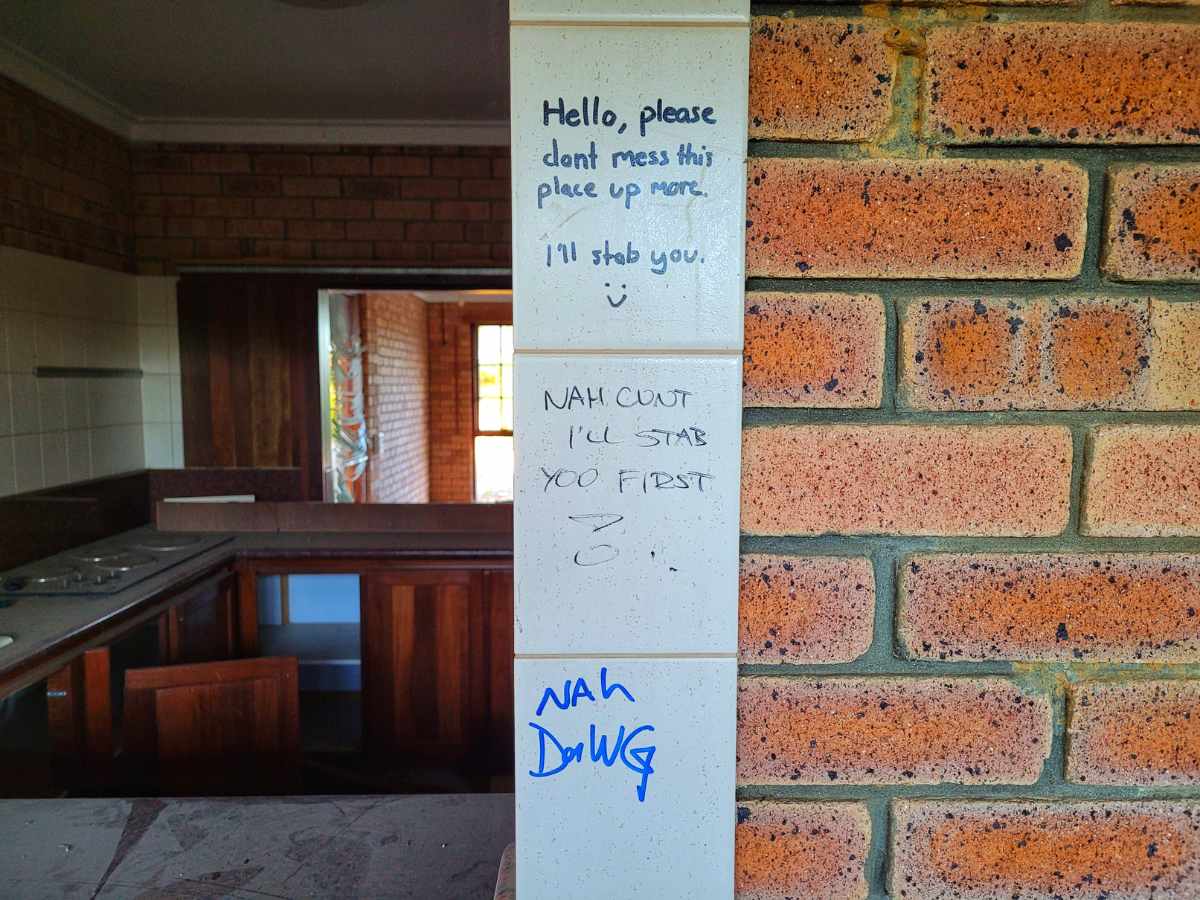 Hello, please
dont mess this
place up more.
I'll stab you.
NAH CUNT
I'LL STAB
YOO FIRST
NAh
DaWG